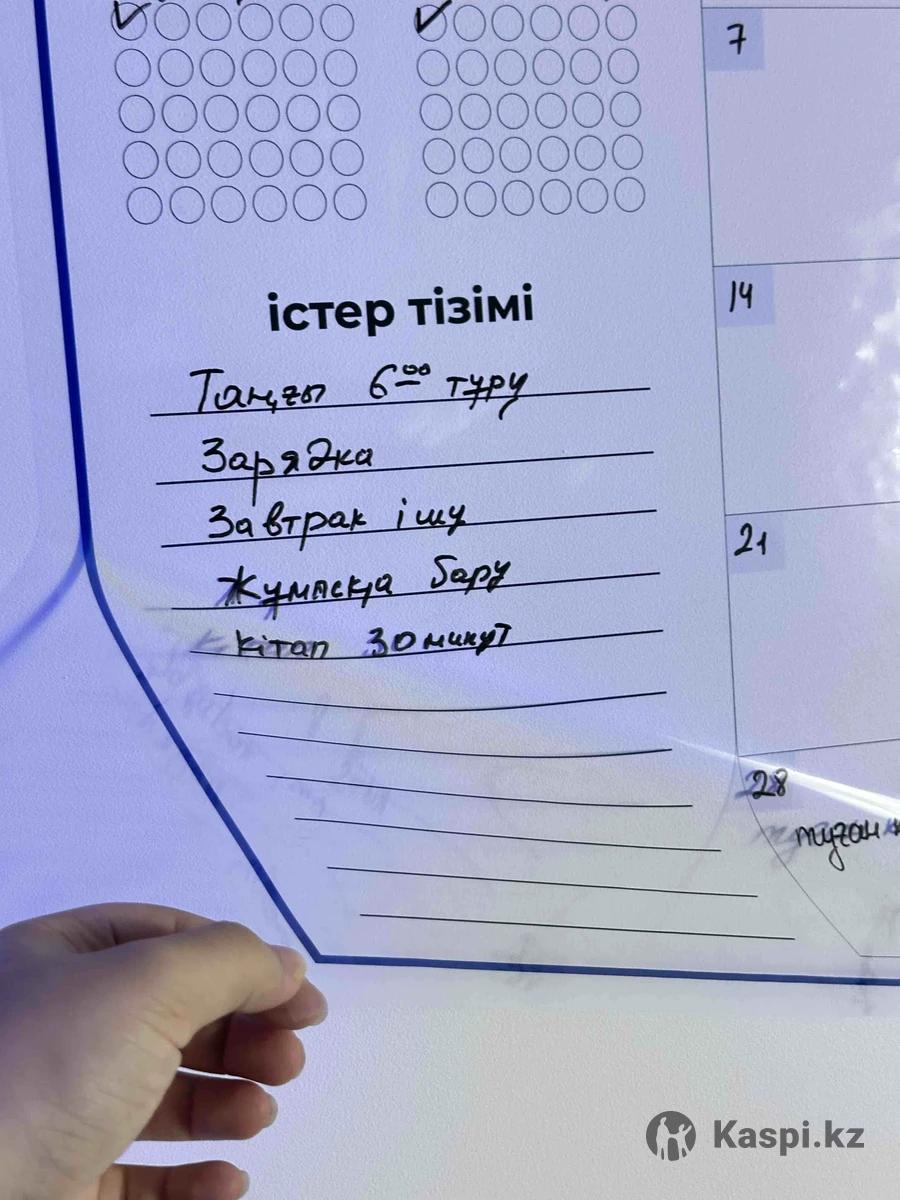 7
14
істер тізімі
Таңғы 6⁰⁰ тұру
Зарядка
Завтрак ішу
21
Жұмысқа бару
кітап 30 минут
28
туған
Kaspi.kz